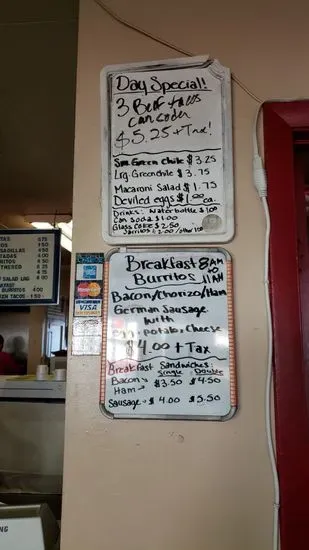 Day Special!
3 Beef tacos
can soda
$5.25 + Tax!
Sm. Green Chile $3.25
Lrg. Greenchile $3.75
Macaroni Salad $1.75
Deviled eggs $1.00 ea.
Drinks: Waterbottle $1.00
Can Soda $1.00
Glass Coke $2.50
Jarritos $2.00
Breakfast 8AM
to
Burritos 11AM
Bacon/Chorizo/Ham
German Sausage
with
egg, potato, cheese
$4.00 + Tax
Breakfast Sandwiches
Single Double
Bacon $3.50 $4.50
Ham
Sausage $4.00 $5.50
MasterCard
VISA
TAS 6.75
4.00
4.00
4.00
4.50
4.25
SALAD LRG
BURRITOS 4.00
EN TACOS 1.50
NG